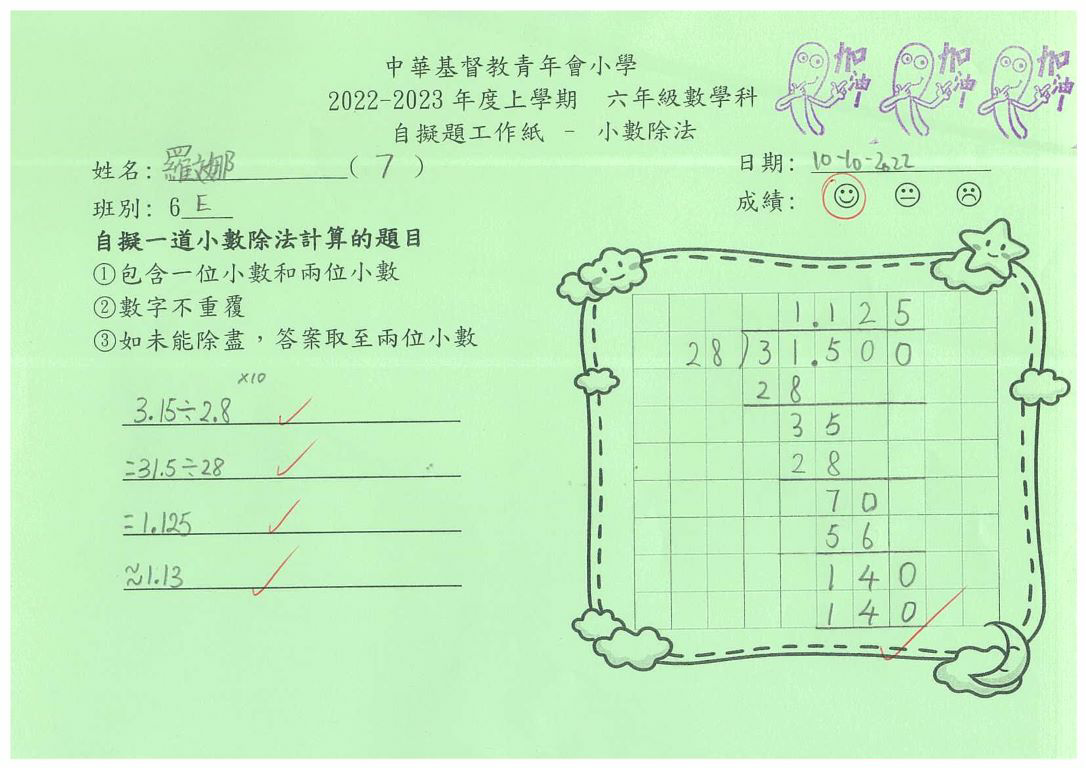 中華基督教青年會小學
2022-2023 年度上學期 六年級數學科
自擬題工作紙 - 小數除法
加油 加油 加油
姓名: 羅娜 ( 7 )
日期: 10-10-2022
班別: 6 E
成績:
自擬一道小數除法計算的題目
①包含一位小數和兩位小數
②數字不重覆
③如未能除盡，答案取至兩位小數
×10
3.15÷2.8
=31.5÷28
=1.125
≈1.13
1.125
28)31.500
28
35
28
70
56
140
140